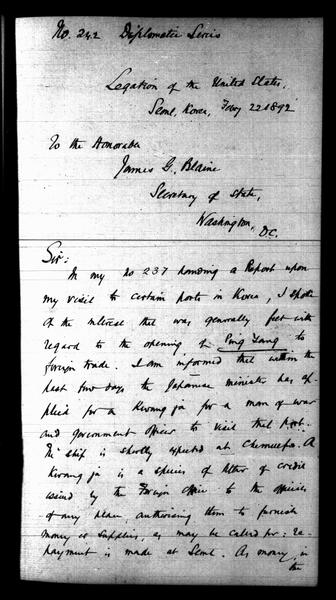 No. 242 Diplomatic Series
Legation of the United States,
Seoul, Korea, Feby 22 1892
To the Honorable
James G. Blaine
Secretary of State,
Washington,
D.C.
Sir:
In my no 237 handing a Report upon
my visit to certain ports in Korea, I spoke
of the interest that was generally felt with
regard to the opening of Ping Yang to
foreign trade. I am informed that within the
past few days the Japanese minister has ap-
plied for a Kwang ja for a man of war
and government officer to visit that port.
The ship is shortly expected at Chemulpo. A
Kwang ja is a species of letter of credit
issued by the Foreign Office to the officials
of any place, authorising them to furnish
money or supplies, as may be called for: re-
payment is made at Seoul. As money, in
the